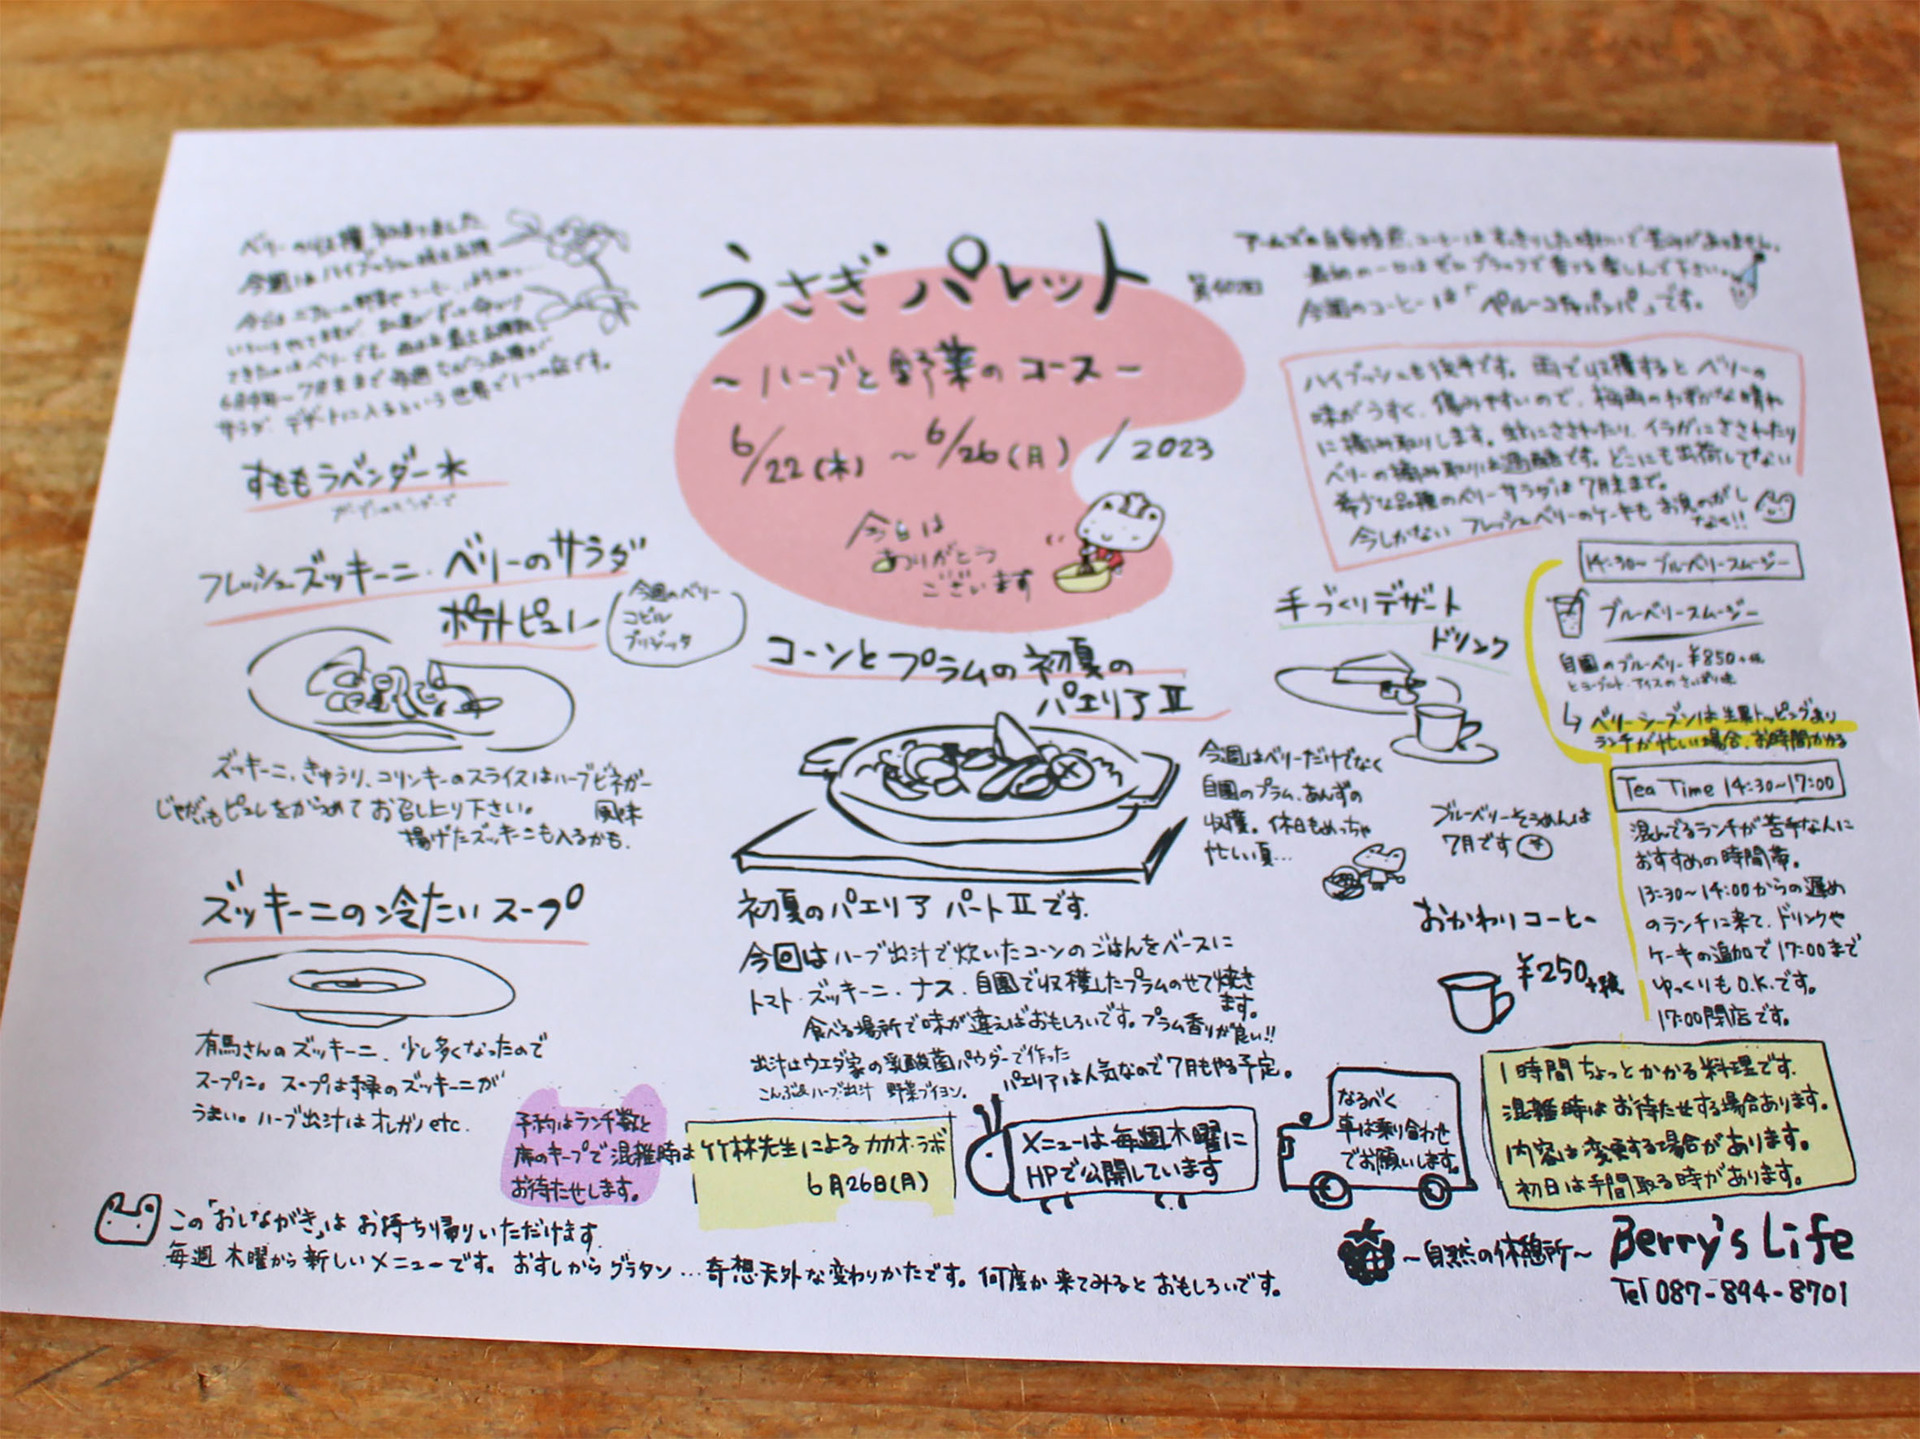 うさぎパレット
~ハーブと野菜のコース~
6/22(木)~6/26(月)/2023
今日は
ありがとう
ございます
ベリーの収穫 始まりました
サラダ、デザートに入るという世界で1つの店です。
すももラベンダー水
フレッシュズッキーニ・ベリーのサラダ
ポテトピュレ
今週のベリー
コビル
ブリジッタ
ズッキーニ、きゅうり、コリンキーのスライスはハーブビネガー
風味
じゃがいもピュレをからめてお召し上り下さい。
揚げたズッキーニも入るかも。
ズッキーニの冷たいスープ
有馬さんのズッキーニ、少し多くなったので
スープに。スープは緑のズッキーニが
うまい。ハーブ出汁はオレガノetc.
コーンとプラムの初夏の
パエリアⅡ
初夏のパエリア パートⅡです。
今回はハーブ出汁で炊いたコーンのごはんをベースに
トマト・ズッキーニ・ナス・自園で収穫したプラムのせて焼き
ます。
食べる場所で味が違えばおもしろいです。プラム香りが良い!!
出汁はウエダ家の乳酸菌パウダーで作った
こんぶ&ハーブ出汁 野菜ブイヨン。
パエリアは人気なので7月もやる予定。
今週のコーヒーは「ペルーコチャパンパ」です。
ハイブッシュも後半です。雨で収穫するとベリーの
味がうすく、傷みやすいので、梅雨のわずかな晴れ
に摘み取りします。蚊にさされたり、イラガにさされたり
ベリーの摘み取りは過酷です。どこにも出荷してない
希少な品種のベリーサラダは7月末まで。
今しかない フレッシュベリーのケーキも お見のがし
なく!!
手づくりデザート
ドリンク
今週はベリーだけでなく
自園のプラム、あんずの
収穫。休日もめっちゃ
忙しい夏…
ブルーベリーそうめんは
7月です
おかわりコーヒー
¥250+税
14:30~ブルーベリースムージー
ブルーベリースムージー
自園のブルーベリー ¥850+税
とヨーグルト・アイスのさっぱり味
↳ ベリーシーズンは生果トッピングあり
ランチが忙しい場合、お時間かかる
Tea Time 14:30~17:00
混んでるランチが苦手な人に
おすすめの時間帯。
13:30~14:00からの遅め
のランチに来て、ドリンクや
ケーキの追加で17:00まで
ゆっくりもO.K.です。
17:00閉店です。
予約はランチ数と
席のキープで混雑時は
お待たせします。
竹林先生によるカカオ・ラボ
6月26日(月)
メニューは毎週木曜に
HPで公開しています
なるべく
車は乗り合わせ
でお願いします。
1時間ちょっとかかる料理です。
混雑時はお待たせする場合あります。
内容は変更する場合があります。
初日は手間取る時があります。
この「おしながき」はお持ち帰りいただけます。
毎週木曜から新しいメニューです。おすしからグラタン…奇想天外な変わりかたです。何度か来てみるとおもしろいです。
~自然の休憩所~ Berry's Life
Tel 087-894-8701